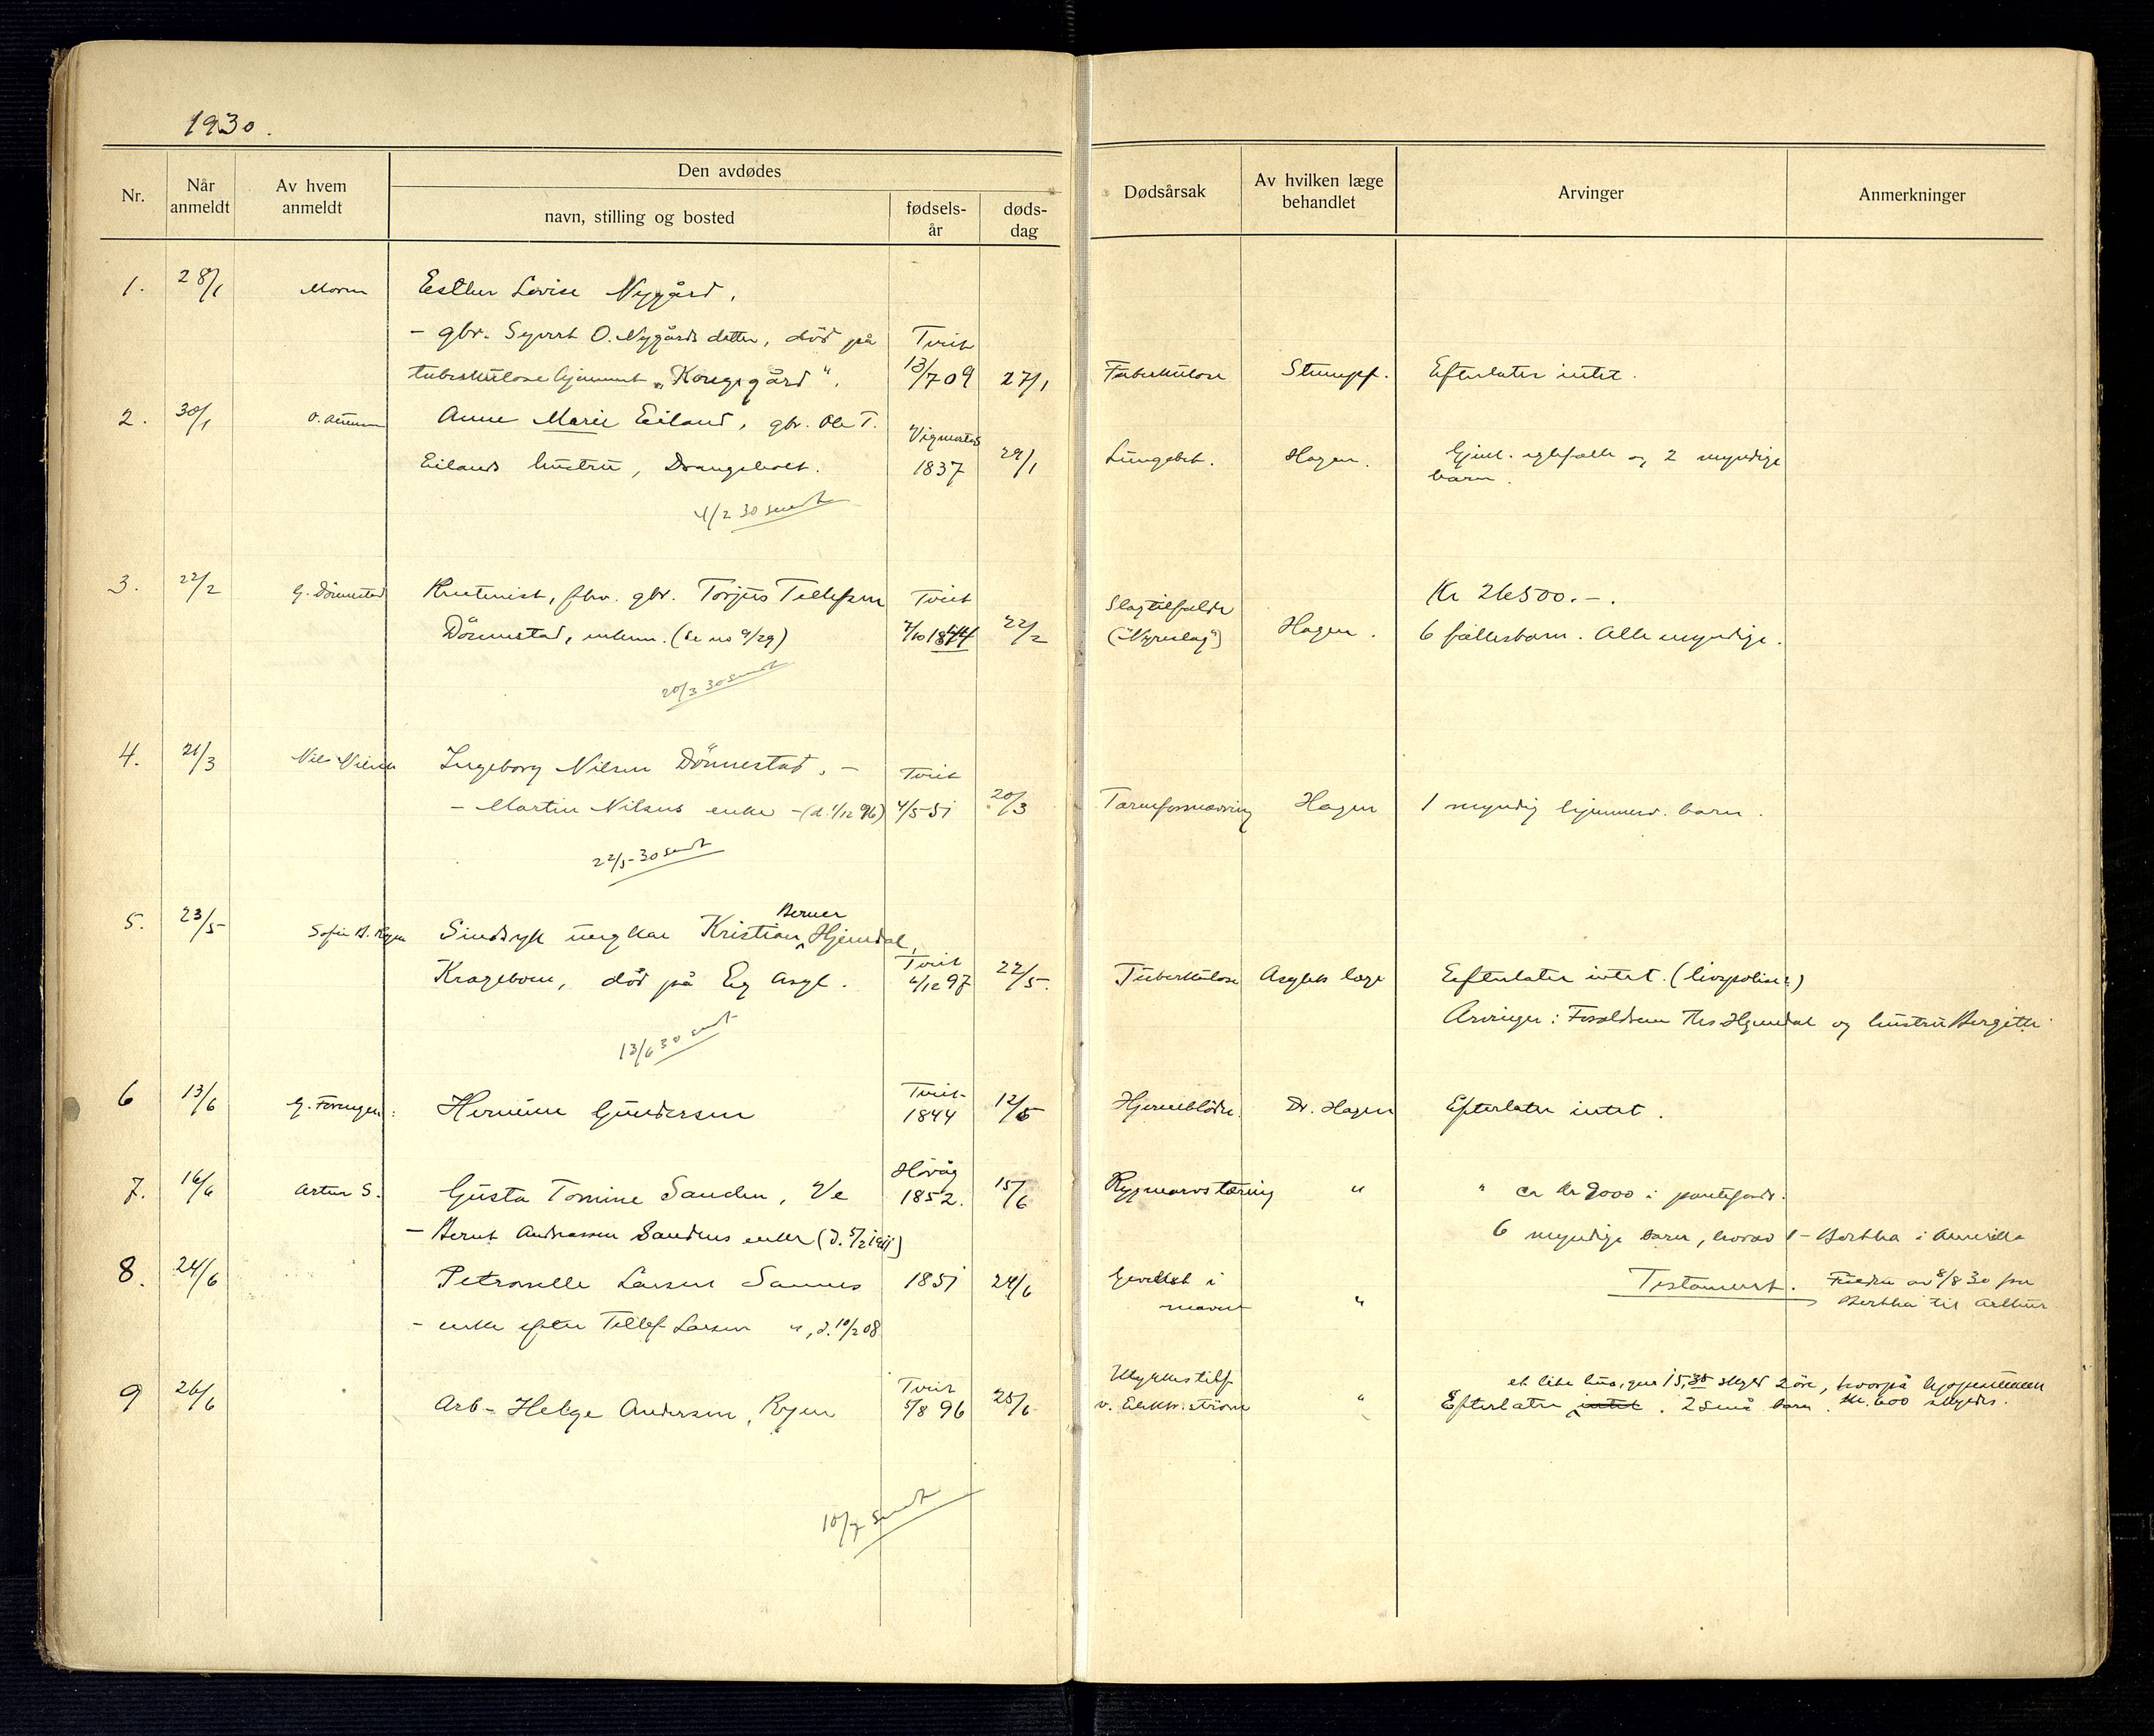 1930.
Nr.
Når anmeldt
Av hvem anmeldt
Den avdødes
navn, stilling og bosted
fødsels-år
døds-dag
Dødsårsak
Av hvilken læge behandlet
Arvinger
Anmerkninger
1. 28/1 Moren Esther Lovise Nygård,
- gbr. Syvert O. Nygårds datter, död på Tveit
tuberkulosehjemmet "Kongsgård". 13/7 09 27/1 Tuberkulose Stumpf. Efterlater intet.
2. 30/1 Anne Marie Eiland, gbr. Ole T. Vigmostad
Eilands hustru, Drangsholt. 1837 29/1 Lungebet. Hagen. Gjenl. egtefælle og 2 myndige
barn.
4/2 30 sendt
3. 22/2 G. Dönnestad fhv. gbr. Torjus Tellefsen Tveit Slagtilfælde Kr 26500.-.
Dönnestad, enkem. (se no 9/29) 7/10 1844 22/2 Hagen. 6 fællesbarn. Alle myndige.
20/3 30 sendt
4. 21/3 Ingeborg Nilsen Dönnestad, - Tveit
- Martin Nilsens enke - (d. 1/12 96) 4/5 51 20/3 Hagen 1 myndig hjemmev. barn.
22/5-30 sendt
5. 23/5 Sofie Sindssyk ungkar Kristian Berner Hjemdal, Tveit
Kragebom, död på Eg Asyl. 4/12 97 22/5. Tuberkulose Asylets læge Efterlater intet. (livspolise?)
Arvinger: Forældrene Hjemdal og hustru Bergitte
13/6 30 sendt
6 13/6 Gundersen Tveit 1844 12/6 Hjerneblödn. Dr. Hagen Efterlater intet.
7. 16/6 Artur S. Gusta Tomine Sanden, Ve Hövåg 1852. 15/6 Rygmarvstæring " " ca kr 9000 i
- Bernt Andreassen Sandens enke (d. 5/2 1911) 6 myndige barn, hvorav 1 - Bertha i Amerika
8. 24/6 Petronelle Larsen Sannes 1851 24/6 i
maven " Testament. av 8/8 30 fra
Bertha til Arthur
- enke efter Tellef Larsen ", d. 10/2 08
9 26/6 Arb. Helge Andersen, Ryen Tveit 5/8 96 25/6 Ulykkestilf.
v. Elektr. ström " Efterlater intet. 2 små barn. kr. 600 skyldes.
et lite hus, gnr 15, 35 skyld 2 öre, hvorpå
10/7 sendt